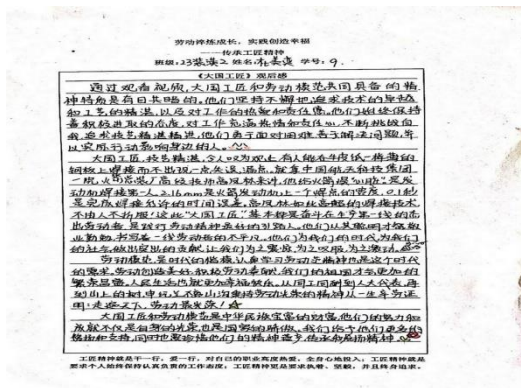 劳动淬炼成长，实践创造幸福
——传承工匠精神
班级：23 姓名： 学号：9.
《大国工匠》观后感
通过观看视频，大国工匠和劳动模范共同具备的精
神特质是有目共睹的。他们坚持不懈地追求技术的卓越
和工艺的精湛，以及对工作的热爱和责任感。他们始终保持
着积极进取的态度，对工作充满热情和责任心，不断挑战自
我，追求技艺精益精进。他们勇于面对困难，善于解决问题，并
以实际行动影响身边的人。
大国工匠，技艺精湛，令人叹为观止，有人能在牛皮纸一样薄的
钢板上焊接而不出现一点失误、漏点，就拿中国航天科技集团
一院 高级技师高凤林来讲，他给火箭焊"心脏"，是发
动机焊接第一人，0.16mm是火箭发动机上一个焊点的宽度，0.1秒
是完成焊接允许的时间误差。高凤林如此高超的焊接技术，
不由人不折服！这些"大国工匠"基本都是奋斗在生产第一线的杰
出劳动者，是践行劳动精神最好的引路人。他们以其聪明才智，敬
业勤勉，书写着一线劳动者的不平凡。他们为我们的时代，为我们
的社会做出突出的贡献，让我们为之骄傲，为之叹服，为之激动。
劳动模范，是时代的楷模，认真学习劳动者精神也是这个时代
的需求。劳动创造美好，积极劳动奉献，我们的祖国才会更加的
繁荣昌盛，人民生活也就更加幸福快乐。从同工同酬到人大代表，再
到山上的树中，
大国工匠和劳动模范是中华民族宝贵的财富，他们的努力和
成就不仅是自身的光荣，也是国家的骄傲。我们应予他们更多的
尊扬和支持，同时也要珍惜他们的精神
工匠精神就是干一行、爱一行，对自己的职业高度热爱，全身心地投入；工匠精神就是
要求个人始终保持认真负责的工作态度，工匠精神更是要求执着、坚毅，并且终身追求。